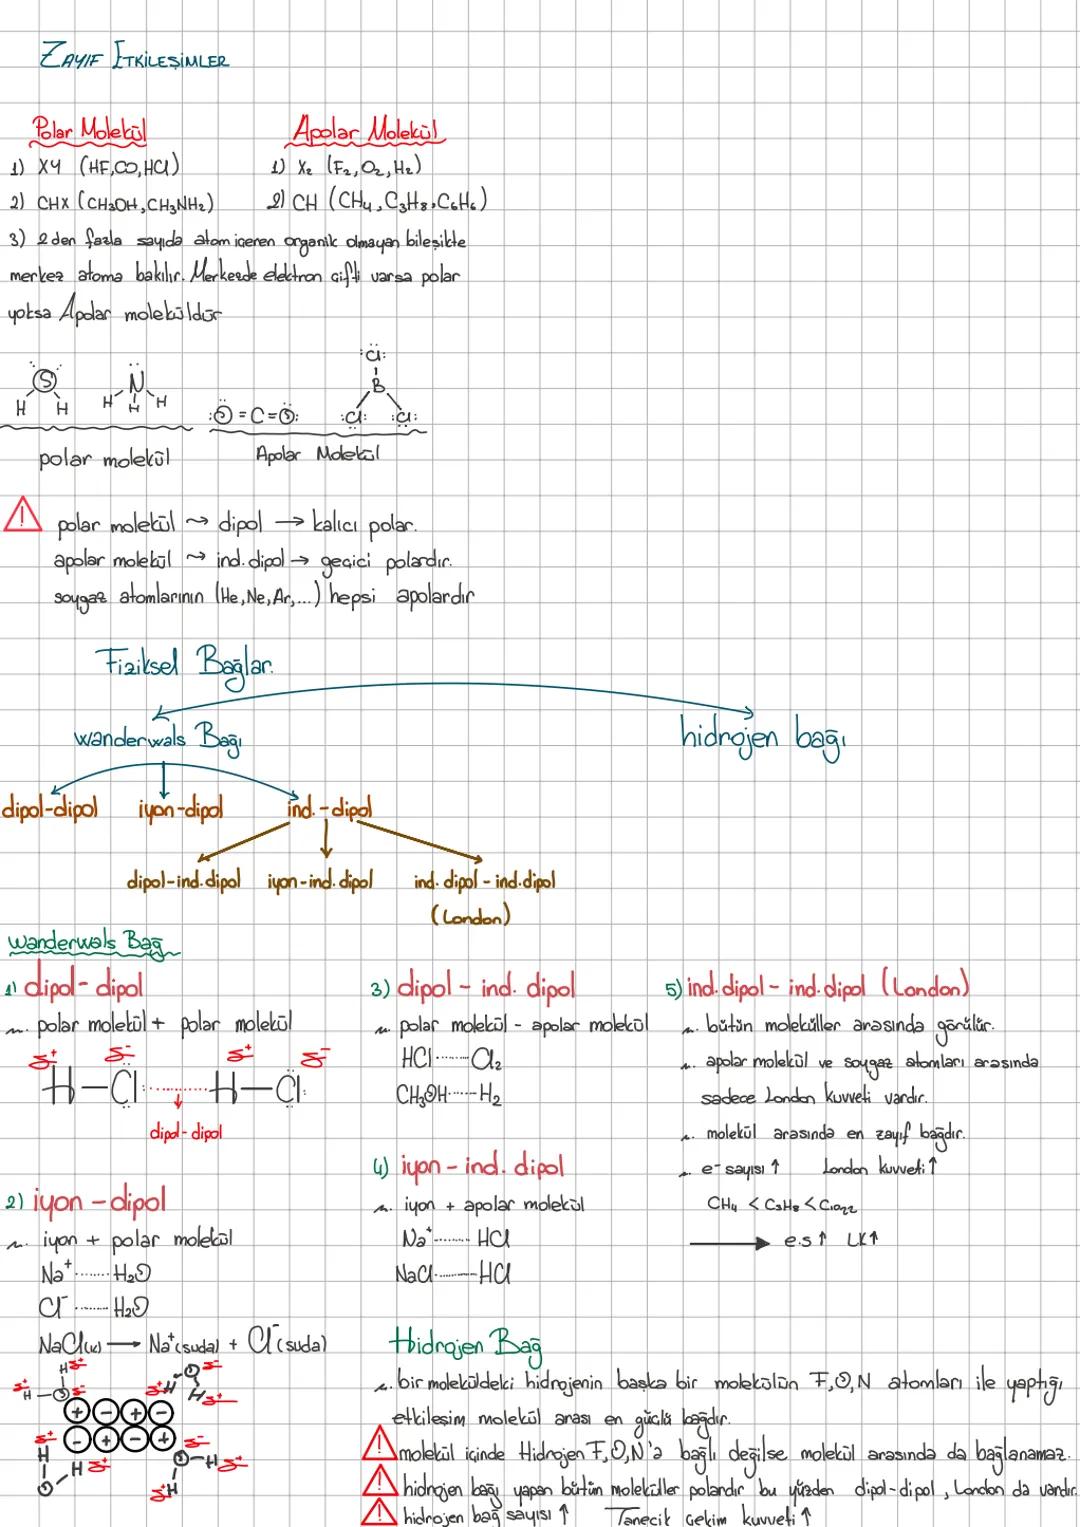 ZAYIF ETKİLEŞİMLER
Polar Molekül
1) XY (HF,CO,HCl)
2) CHX (CH3OH,CH3NH2)
Apolar Molekül
1) X2 (F2,O2,H2)
2) CH (CH4,C3H8,C6H6)
3) 2den fazla sayıda atom içeren organik olmayan bileşikte
merkez atoma bakılır. Merkezde elektron çifti varsa polar
yoksa Apolar moleküldür
S
H H
N
H H H
:O=C=O:
:Cl:
B
:Cl: :Cl:
polar molekül
Apolar Molekül
polar molekül ⤳ dipol → kalıcı polar.
apolar molekül ⤳ ind.dipol → geçici polardır.
soygaz atomlarının (He,Ne,Ar,...) hepsi apolardır
Fiziksel Bağlar.
wanderwals Bağı
hidrojen bağı
dipol-dipol iyon-dipol ind.-dipol
dipol-ind.dipol iyon-ind.dipol ind.dipol-ind.dipol
(London)
wanderwals Bağ
1) dipol-dipol
polar molekül + polar molekül
δ+ δ- δ+ δ-
H—Cl:........H—Cl:
dipol-dipol
2) iyon-dipol
iyon + polar molekül
Na+........H2O
Cl-.......H2O
NaCl(k) → Na+(suda) + Cl-(suda)
H δ+
δ+ H—O δ-
δ+H O δ-
H δ+
+ - + -
- + - +
δ+ H
O H δ+
δ- O-H δ+
δ+H
3) dipol - ind. dipol
polar molekül - apolar molekül
HCl.......Cl2
CH3OH......H2
4) iyon - ind. dipol
iyon + apolar molekül
Na+........HCl
NaCl........HCl
5) ind.dipol - ind.dipol (London)
bütün moleküller arasında görülür.
apolar molekül ve soygaz atomları arasında
sadece London kuvveti vardır.
molekül arasında en zayıf bağdır.
e- sayısı ↑ London kuvveti ↑
CH4 < C3H8 < C10H22
→ e.s ↑ LK↑
Hidrojen Bağ
bir moleküldeki hidrojenin başka bir molekülün F,O,N atomları ile yaptığı
etkileşim molekül arası en güçlü bağdır.
molekül içinde Hidrojen F,O,N'a bağlı değilse molekül arasında da bağlanamaz.
hidrojen bağı yapan bütün moleküller polardır bu yüzden dipol-dipol, London da vardır.
hidrojen bağ sayısı ↑ Tanecik çekim kuvveti ↑